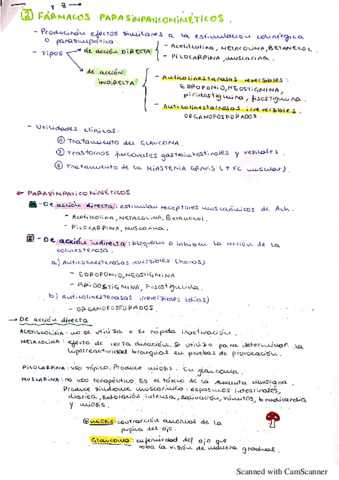 y 3
2 FÁRMACOS PARASINPATICOMIMÉTICOS.
- Producción efectos similares a la estimulación colinérgica
o parasimpática
- Tipos
de acción DIRECTA
- Acetilcolina, METACOLINA, BETANECOL.
- PILOCARPINA, muscarina.
de acción INDIRECTA
- Anticolinesterasas reversibles:
EDROFONIO, NEOSTIGMINA,
piridostigmina, fisostigmina.
- Anticolinesterasas irreversibles.
ORGANOFOSFORADOS.
- Utilidades clínicas:
① Tratamiento del GLAUCOMA.
② Trastornos funcionales gastrointestinales y vesicales.
③ Tratamiento de la MIASTENIA GRAVIS (↑ FC muscular).
PARASINPATICOMIMÉTICOS
1 - De acción directa: estimulan receptores muscarínicos de Ach.
- Acetilcolina, METACOLINA, Betanecol.
- PILOCARPINA, Muscarina.
2 - De acción indirecta: bloquean o inhiben la acción de la
colinesterasa.
a) Anticolinesterasas reversibles (horas)
- EDROFONIO, NEOSTIGMINA
- PIRIDOSTIGMINA, Fisostigmina.
b) Anticolinesterasas irreversibles (días)
- ORGANOFOSFORADOS.
→ De acción directa
ACETILCOLINA: no se utiliza x su rápida inactivación.
METACOLINA: efecto de corta duración. Se utiliza para determinar la
hiperreactividad bronquial en pruebas de provocación.
PILOCARPINA: uso tópico. Produce miosis. En glaucoma.
MUSCARINA: no uso terapéutico. Es el tóxico de la Amanita muscaria.
Produce síndrome muscarínico: espasmos intestinales,
diarrea, sudoración intensa, salivación, vómitos, bradicardia
y miosis.
miosis: contracción anormal de la
pupila del ojo.
Glaucoma: enfermedad del ojo que
roba la visión de manera gradual.
Scanned with CamScanner